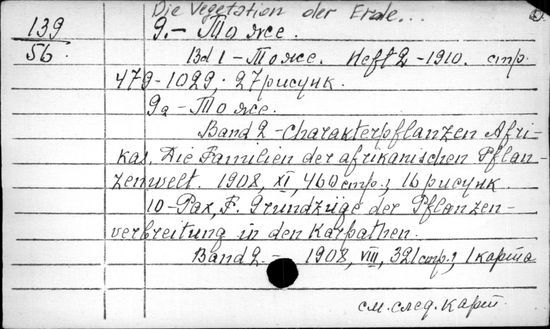 Die Vegetation der Erde...
139
56.
9.- То же.
Bd 1 - То же. Heft 2 - 1910. стр.
479-1029; 27 рисунк.
9а - То же.
Band 2 - Charakterpflanzen Afri-
kas, Die Familien der afrikanischen Pflan-
zenwelt. 1908, XI, 460 стр.; 16 рисунк.
10 - Pax, F. Grundzüge der Pflanzen-
verbreitung in den Karpathen.
Band 2. - 1908, VIII, 321 стр.; 1 карта
см. след. карт.